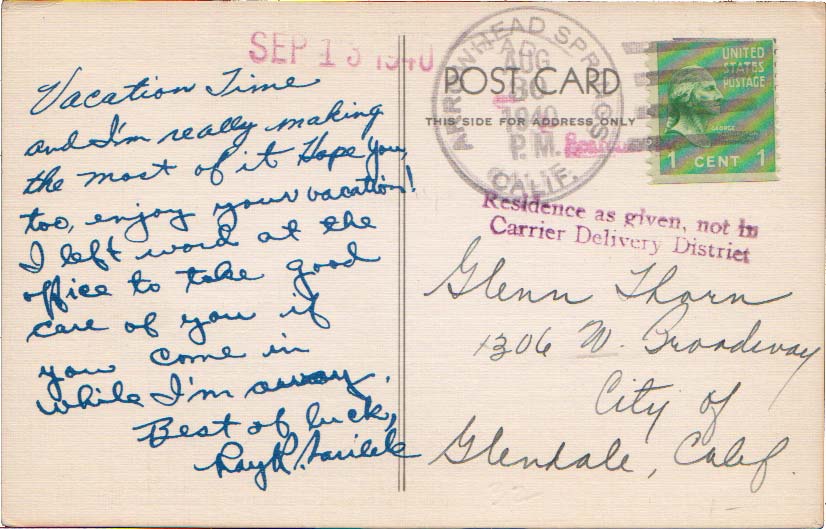 SEP 13 1940
Vacation Time
and I'm really making
the most of it Hope you,
too, enjoy your vacation!
I left word at the
office to take good
care of you if
you come in
while I'm away.
Best of luck,
Ray R.
POST CARD
THIS SIDE FOR ADDRESS ONLY
ARROWHEAD SPRINGS
AUG
30
1940
P.M.
CALIF.
UNITED
STATES
POSTAGE
GEORGE
1 CENT 1
Residence as given, not in
Carrier Delivery District
Glenn Thorn
1306 W. Broadway
City of
Glendale, Calif.